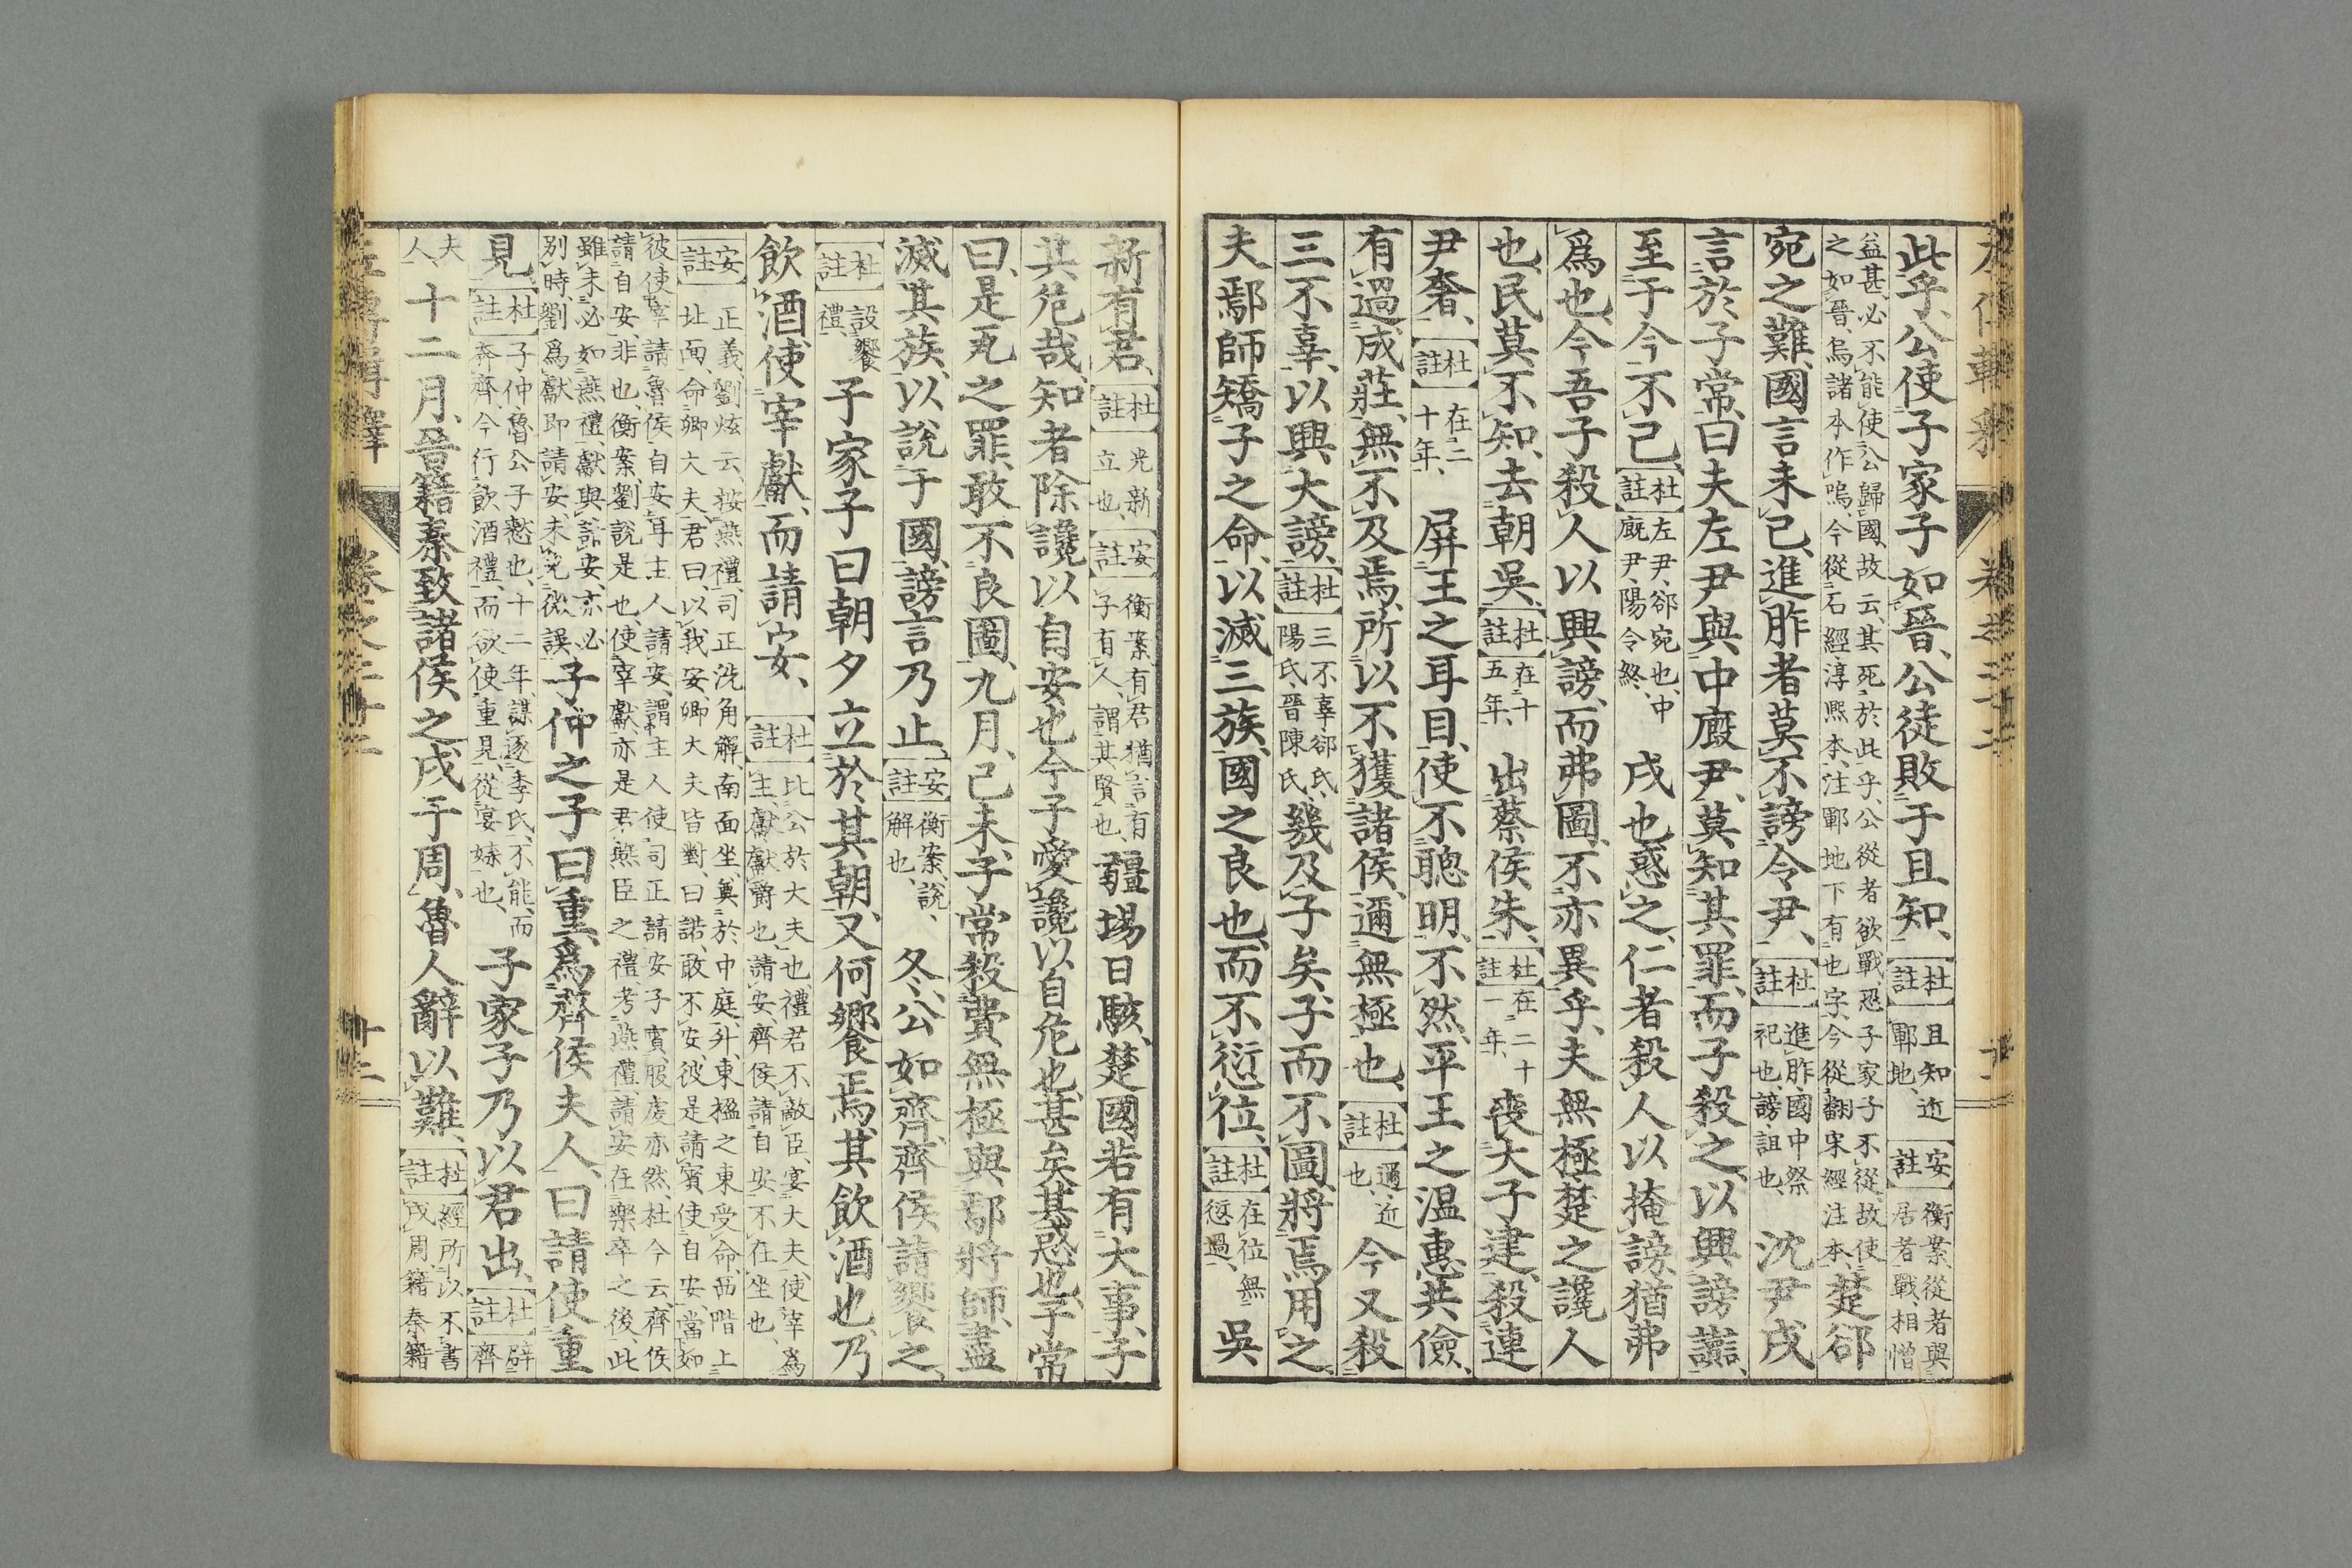 此乎、公使子家子如晉、公徒敗于且知、【杜註】且知近鄆地、【安註】衡案、從者與居者戰、相憎
益甚、必不能使公歸國、故云、其死於此乎、公從者欲戰、恐子家子不從、故使之如晉、烏諸本作嗚、今從石經、淳熙本、注鄆地下有也字、今從翻宋經注本、楚郤
宛之難、國言未已、進胙者莫不謗令尹、【杜註】進胙、國中祭祀也、謗、詛也、沈尹戌
言於子常、曰夫左尹與中廄尹、莫知其罪、而子殺之、以興謗讟、
至于今不已、【杜註】左尹、郤宛也、中廄尹、陽令終、戌也惑之、仁者殺人以掩謗、猶弗
爲也、今吾子殺人以興謗、而弗圖、不亦異乎、夫無極、楚之讒人
也、民莫不知、去朝吳、【杜註】在十五年、出蔡侯朱、【杜註】在二十一年、喪大子建、殺連
尹奢、【杜註】在二十年、屏王之耳目、使不聰明、不然、平王之温惠共儉、
有過成莊、無不及焉、所以不獲諸侯、邇無極也、【杜註】邇、近也、今又殺
三不辜、以興大謗、【杜註】三不辜、郤氏、陽氏、晉陳氏、幾及子矣、子而不圖、將焉用之、
夫鄢將師矯子之命、以滅三族、國之良也、而不愆位、【杜註】在位無愆過、吳
新有君、【杜註】光新立也、【安註】衡案、有君猶言有子有人、謂其賢也、疆場日駭、楚國若有大事、子
其危哉、知者除讒以自安也、今子愛讒以自危也、甚矣其惑也、子常
曰、是瓦之罪、敢不良圖、九月、己未、子常殺費無極與鄢將師、盡
滅其族、以説于國、謗言乃止、【安註】衡案、説、解也、冬、公如齊、齊侯請饗之、
【杜註】設饗禮、子家子曰朝夕立於其朝、又何饗焉、其飲酒也、乃
飲酒、使宰獻、而請安、【杜註】比公於大夫也、禮君不敵臣、宴大夫使宰爲主、獻、獻爵也、請安、齊侯請自安、不在坐也、
【安註】正義劉炫云、按燕禮、司正洗角觶、南面坐、奠於中庭、升、東楹之東受命、西階上北面、命卿大夫、君曰、以我安、卿大夫皆對、曰諾、敢不安、彼是請賓使自安、當如
彼使宰請、魯侯自安耳、主人請安、謂主人使司正請安于賓、服虔亦然、杜今云齊侯請自安、非也、衡案、劉説是也、使宰獻亦是君燕臣之禮、考燕禮、請安在樂卒之後、此
雖未必如燕禮、獻與請安、亦必別時、劉爲獻即請安、未免微誤、子仲之子曰重、爲齊侯夫人、曰請使重
見、【杜註】子仲、魯公子憖也、十二年、謀逐季氏、不能、而奔齊、今行飲酒禮、而欲使重見、從宴媟也、子家子乃以君出、【杜註】辟齊
夫人、十二月、晉籍秦致諸侯之戍于周、魯人辭以難、【杜註】經所以不書戍周、籍秦、籍